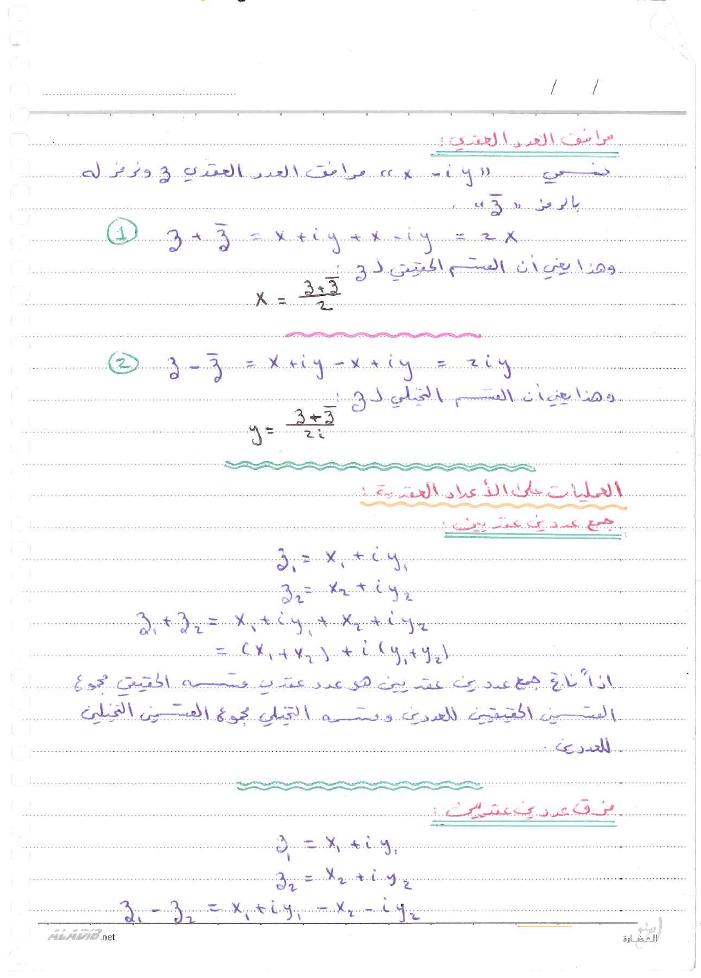 / /
مرافق العدد العقدي:
نسمي "x - iy" مرافق العدد العقدي z ونرمز له
بالرمز "z̄".
① z + z̄ = x + iy + x - iy = 2x
وهذا يعني أن القسم الحقيقي لـ z:
x = (z + z̄)/2
② z - z̄ = x + iy - x + iy = 2iy
وهذا يعني أن القسم التخيلي لـ z:
y = (z + z̄)/2i
العمليات على الأعداد العقدية:
جمع عددين عقديين:
z₁ = x₁ + iy₁
z₂ = x₂ + iy₂
z₁ + z₂ = x₁ + iy₁ + x₂ + iy₂
= (x₁ + x₂) + i(y₁ + y₂)
اذاً ناتج جمع عددين عقديين هو عدد عقدي قسمه الحقيقي مجموع
القسمين الحقيقيين للعددين وقسمه التخيلي مجموع القسمين التخيلين
للعددين.
فرق عددين عقديين:
z₁ = x₁ + iy₁
z₂ = x₂ + iy₂
z₁ - z₂ = x₁ + iy₁ - x₂ - iy₂
ALADIB.net
الحضارة